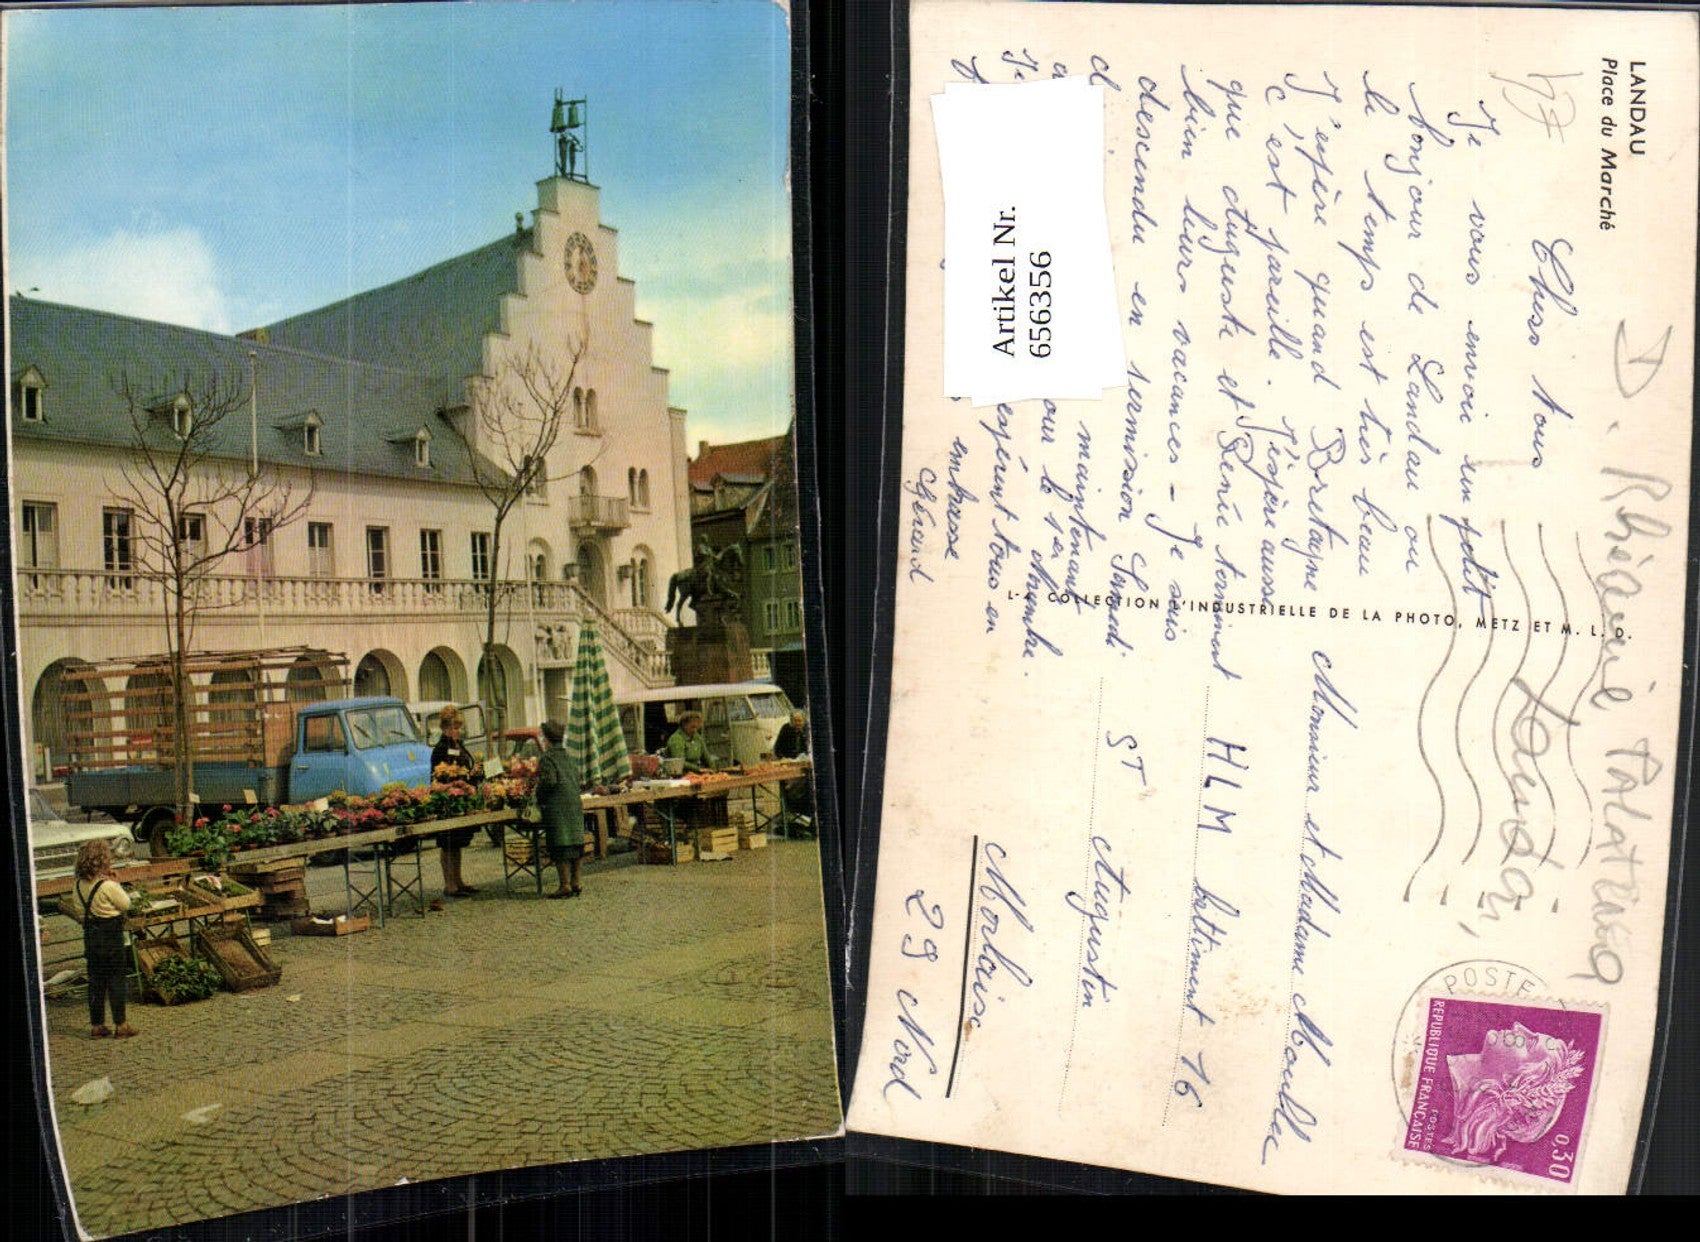 LANDAU
Place du Marché
Chers tous
Je vous envoie un petit
bonjour de Landau ou
le temps est très beau
J'espère quand Bretagne
c'est pareille. J'espère aussi
que Auguste et Renée terminent
bien leurs vacances - Je suis
descendu en permission Samedi
maintenant
our le 1er Novembre.
espérant tous en
embrasse
Gérard
Artikel Nr.
656356
COLLECTION L'INDUSTRIELLE DE LA PHOTO, METZ ET M. L. O.
Monsieur et Madame Moullec
HLM battiment 16
ST Augustin
Morlaix
29 Nord
D. Rhénanie Palatinat
Landau
POSTE
REPUBLIQUE FRANÇAISE
POSTES
0,30